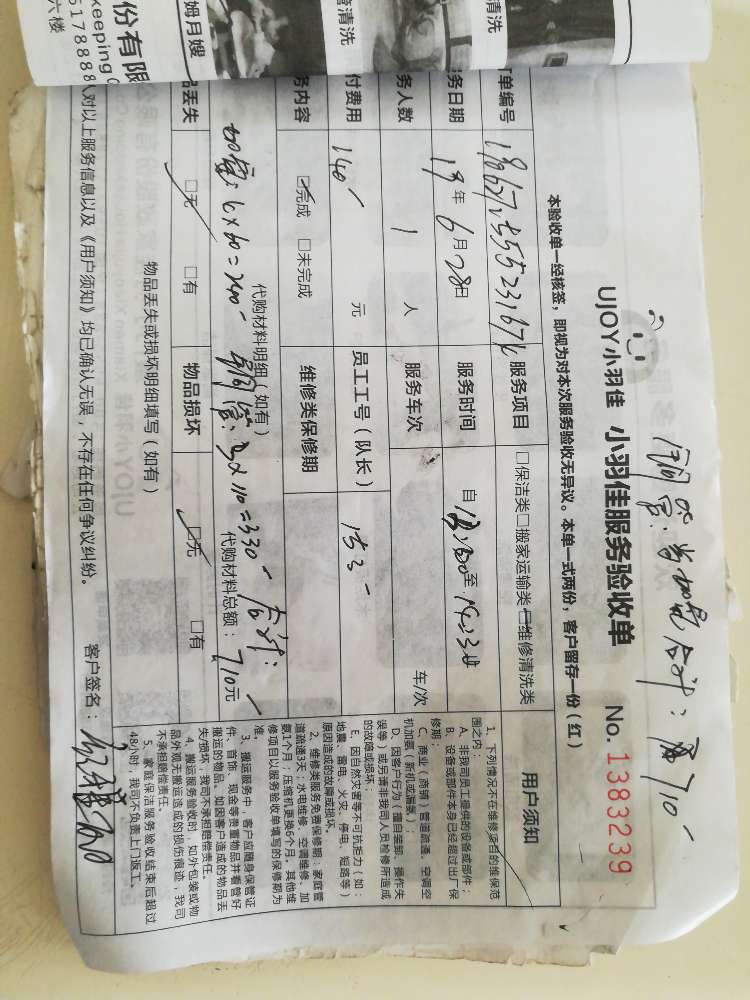 份有限
keeping
六楼
517888
姆月嫂
清洗
清洗
铜管.
合计:
710
UJOY小羽佳 小羽佳服务验收单
No. 1383239
本验收单一经核签，即视为对本次服务验收无异议。本单一式两份，客户留存一份（红）
单编号
服务项目 □保洁类□搬家运输类□维修清洗类
务日期 19年6月28日 服务时间 自 至
务人数 1 人 服务车次 车/次
付费用 140 元 员工工号（队长） 153
务内容 □完成 □未完成 维修类保修期
代购材料明细（如有）
6×60=240 铜管: 3×110=330 合计:
代购材料总额: 710元
品丢失 □无 □有 物品损坏 □无 □有
物品丢失或损坏明细填写（如有）
人对以上服务信息以及《用户须知》均已确认无误，不存在任何争议纠纷。
客户签名:
用户须知
1、下列情况不在维修项目的维保范
围之内:
A、非我司员工提供的设备或部件;
B、设备或部件本身已经超过出厂保
修期;
C、商业（商铺）管道疏通、空调空
机加氨（新机或漏氨）;
D、因客户行为（擅自装卸、操作失
误等）或另请非我司人员检修所造成
的故障或损坏;
E、因自然灾害等不可抗拒力（如:
地震、雷电、火灾、停电、短路等）
原因造成的故障或损坏。
2、维修类服务免费保修期: 家庭管
道疏通3天; 水电维修、空调维修、加
氨1个月; 压缩机更换6个月。其他维
修项目以服务验收单填写的保修期为
准。
3、搬运服务中，客户应随身保管证
件、首饰、现金等贵重物品并看管好
搬运的物品。如因客户造成的物品丢
失/损坏，我司不承担赔偿责任。
4、搬运服务验收时，如外包装或物
品外观无搬运造成的损坏痕迹，我司
不承担赔偿责任。
5、家庭保洁服务验收结束后超过
48小时，我司不负责上门返工。